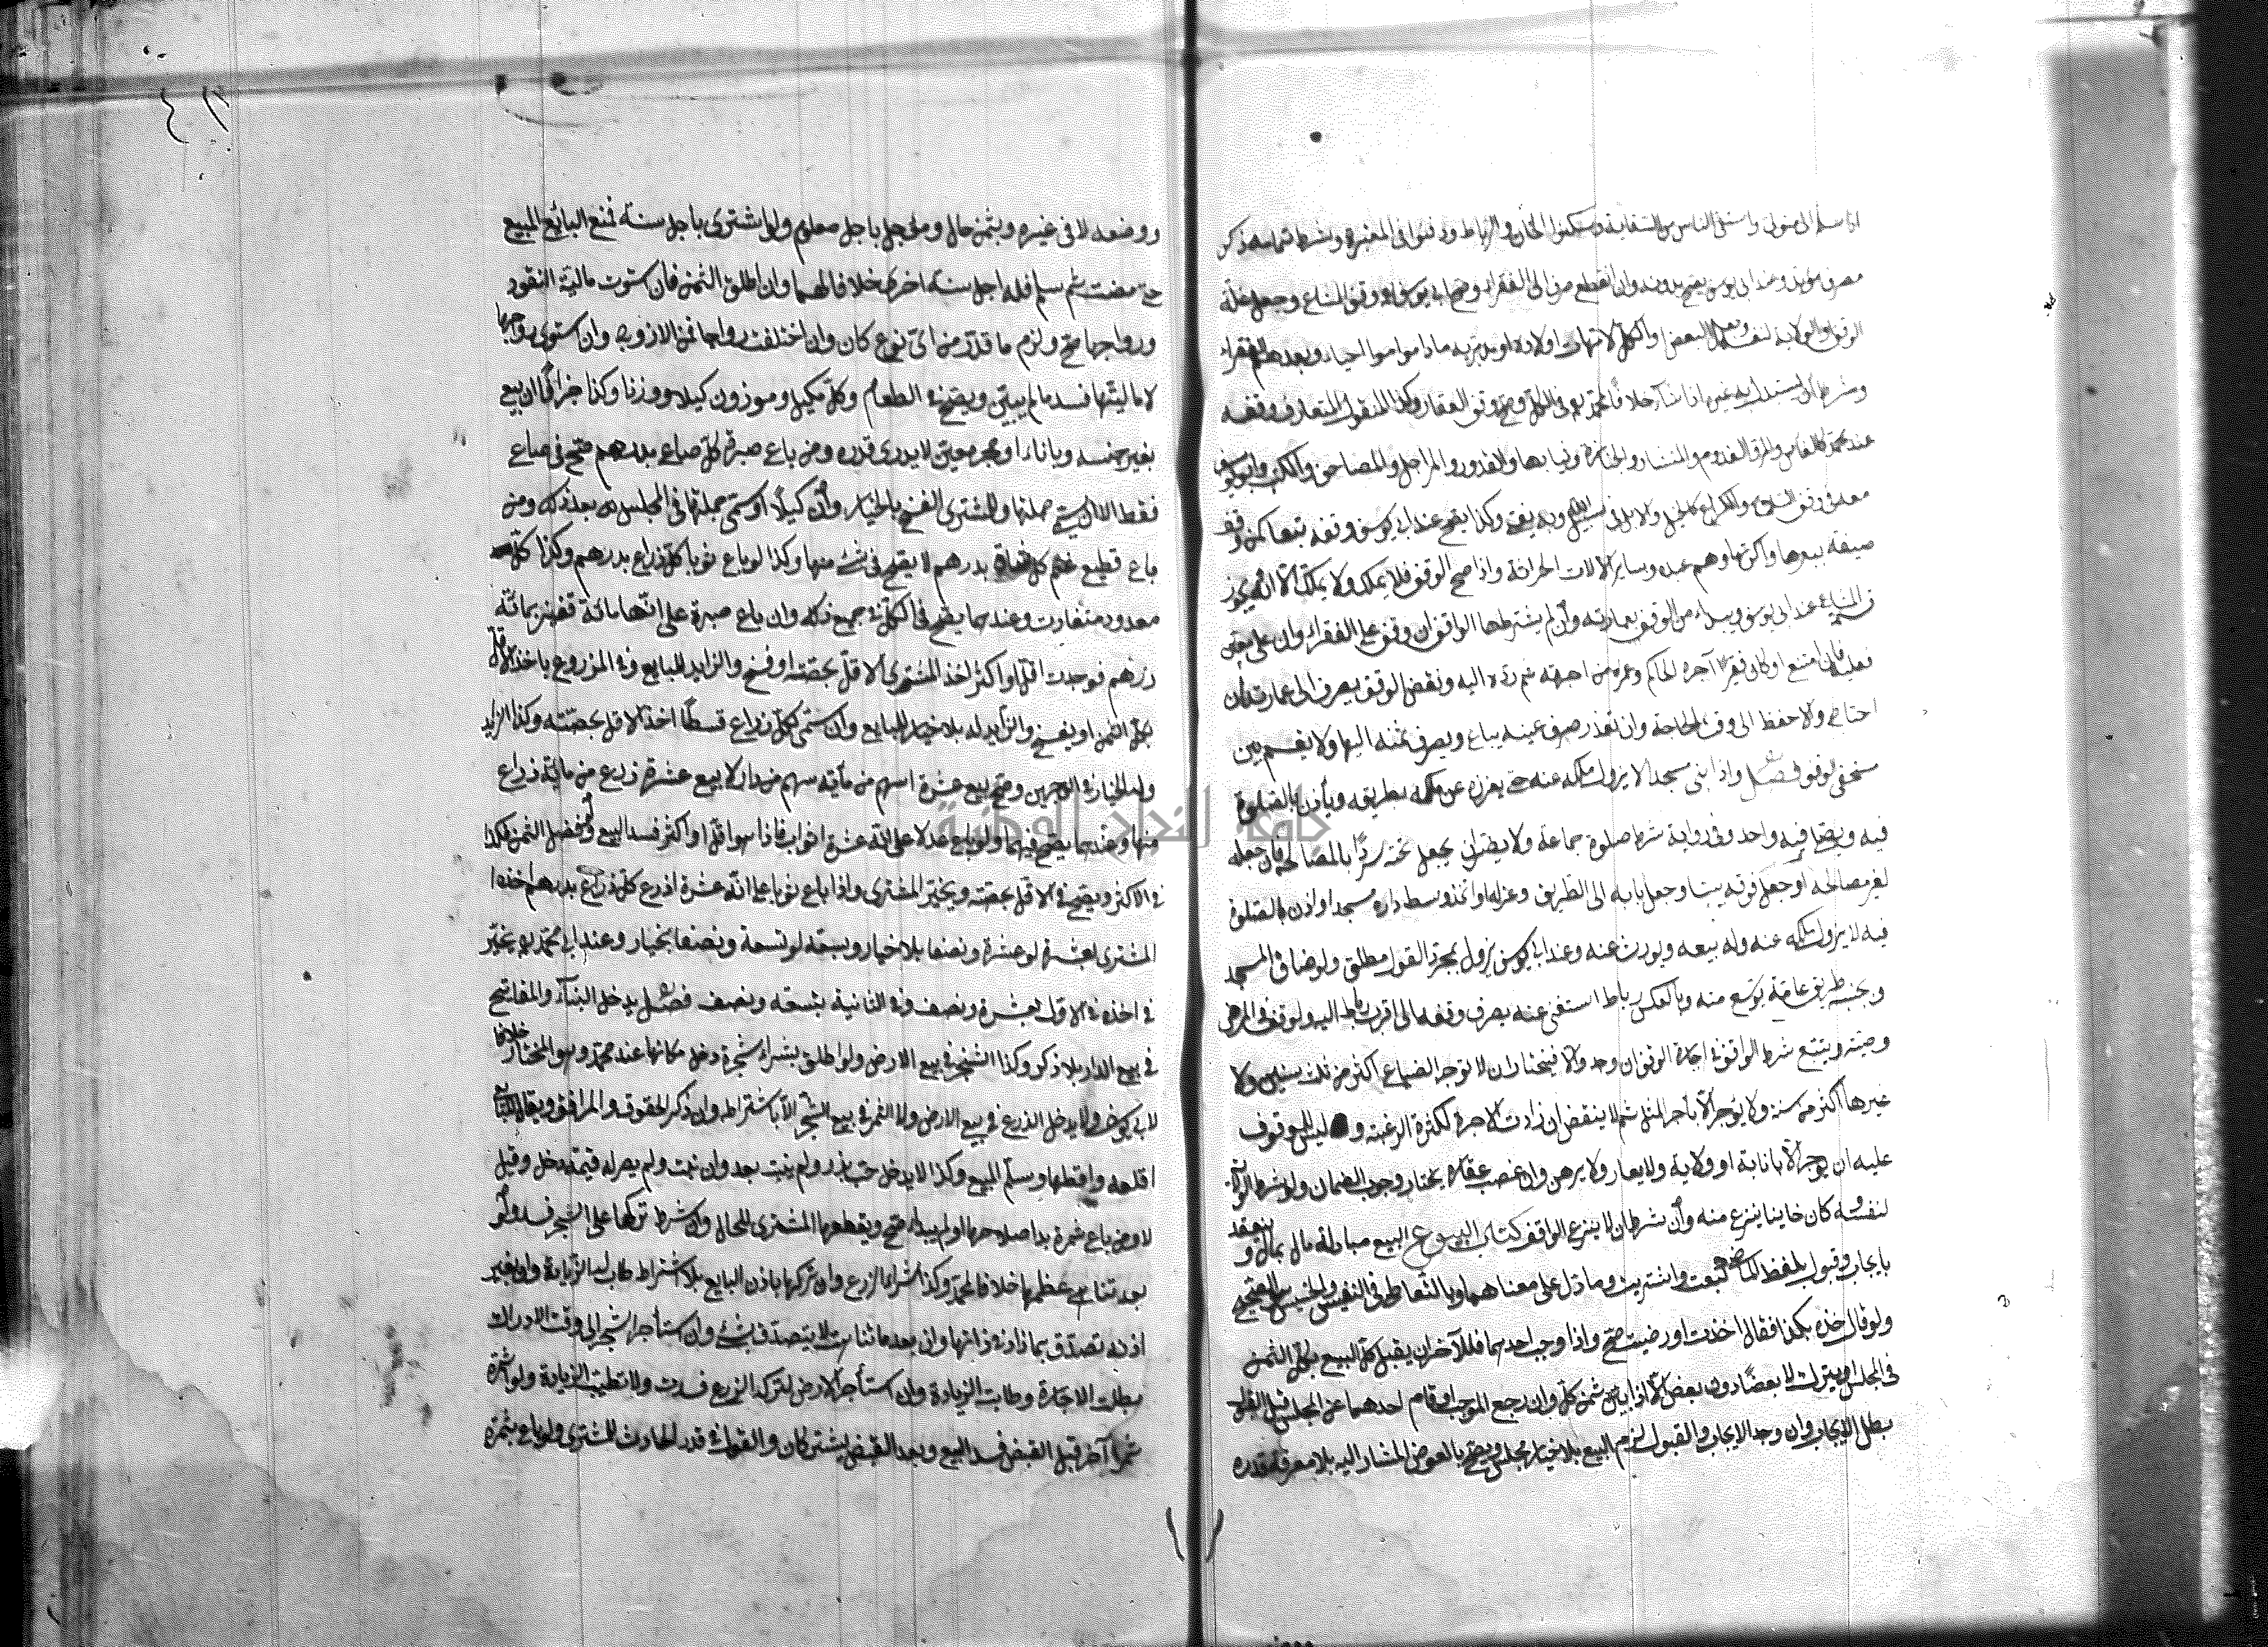 اذا سلم الى متول واستقى الناس من السقاية وسكنوا الخان والرباط ودفنوا في المقبرة وشرط لتمامه ذكر
مصرف مؤبد وعند ابي يوسف يصح بدونه واذا انقطع صرف الى الفقراء وصح ابي يوسف وقف المشاع وجعل غلة
الوقف والولاية لنفسه وجعل البعض او الكل لامهات اولاده او مدبريه ما داموا احياء وبعدهم للفقراء
وشرط ان يستبدل به غيره اذا شاء خلافا لمحمد في الكل وصح وقف العقار وكذا المنقول المتعارف وقفه
عند محمد كالفاس والمر والقدوم والمنشار والجنازة وثيابها والقدور والمراجل والمصاحف والكتب وابو يوسف
معه في وقف السلاح والكراع كالخيل والابل في سبيل الله وبه يفتى وكذا يصح عند ابي يوسف وقفه تبعا كمن وقف
ضيعة ببقرها واكرتها وهم عبيده وسائر آلات الحراثة واذا صح الوقف فلا يملك ولا يملك الا انه يجوز
في المشاع عند ابي يوسف ويبدأ من الوقف بعمارته وان لم يشترطها الواقف ان وقف على الفقراء وان على معين
فعليه فان امتنع او كان فقيرا آجره الحاكم وعمره من اجرته ثم رده اليه ونقض الوقف يصرف الى عمارته ان
احتاج والا حفظ الى وقت الحاجة وان تعذر صرف عينه يباع ويصرف ثمنه اليها ولا يقسم بين
مستحقي الوقف فصل واذا بنى مسجدا لا يزول ملكه عنه حتى يفرزه عن ملكه بطريقه ويأذن بالصلوة
فيه ويصلي فيه واحد وفي رواية شرط صلوة جماعة ولا يضر ان يجعل تحته سردابا لمصالحه فان جعله
لغير مصالحه او جعل فوقه بيتا وجعل بابه الى الطريق وعزله او اتخذ وسط داره مسجدا واذن بالصلوة
فيه لا يزول ملكه عنه وله بيعه ويورث عنه وعند ابي يوسف يزول بمجرد القول مطلق ولو ضاق المسجد
وبجنبه طريق عامة يوسع منه وبالعكس رباط استغني عنه يصرف وقفه الى اقرب رباط اليه ولو وقف في المرض
وصيته ويتبع شرط الواقف في اجارة الوقف ان وجد والا فيختار ان لا توجر الضياع اكثر من ثلث سنين ولا
غيرها اكثر من سنة ولا يؤجر الا باجر المثل ثم لا ينقض ان زادت الاجرة لكثرة الرغبة و ليس للموقوف
عليه ان يوجر الا بانابة او ولاية ولا يعار ولا يرهن وان غصب عقاره يختار وجوب الضمان ولو شرط الولاية
لنفسه وكان خاينا ينزع منه وان شرط ان لا ينزع الواقف كتاب البيوع البيع مبادلة مال بمال وينعقد
بايجاب وقبول بلفظ الماضي كبعت واشتريت وما دل على معناهما وبالتعاطي في النفيس والخسيس هو الصحيح
ولو قال خذه بكذا فقال اخذت او رضيت صح واذا وجب احدهما فللآخر ان يقبل كل المبيع بكل الثمن
في المجلس او يترك لا بعضا دون بعض الا اذا بين ثمن كل وان رجع الموجب او قام احدهما عن المجلس قبل القبول
بطل الايجاب وان وجد الايجاب والقبول لزم البيع بلا خيار مجلس ويصح بالعوض المشار اليه بلا معرفة قدره
ووضعه لا في غيره وبثمن حال ومؤجل باجل معلوم ولو اشترى باجل سنة فمنع البائع المبيع
حتى مضت ثم سلم فله اجل سنة اخرى خلافا لهما وان اطلق الثمن فان استوت مالية النقود
ورواجها صح ولزم ما قدر من اي نوع كان وان اختلفت رواجا فمن الاروج وان استوى رواجها
لا ماليتها فسد ما لم يبين ويصح في الطعام وكل مكيل وموزون كيلا ووزنا وكذا جزافا ان بيع
بغير جنسه وباناء او حجر معين لا يدرى قدره ومن باع صبرة كل صاع بدرهم صح في صاع
فقط الا ان يسمى جملتها وللمشتري الفسخ بالخيار وان كيلا او سمى جملتها في المجلس بعد ذلك ومن
باع قطيع غنم كل شاة بدرهم لا يصح في شئ منها وكذا لو باع ثوبا كل ذراع بدرهم وكذا كل
معدود متفاوت وعندهما يصح في الكل في جميع ذلك وان باع صبرة على انها مائة قفيز بمائة
درهم فوجدت اقل او اكثر اخذ المشتري الاقل بحصته او فسخ والزايد للبايع وفي المذروع ياخذ الاقل
بكل الثمن او يفسخ والزايد له بلا خيار للبايع وان سمى لكل ذراع قسطا اخذ الاقل بحصته وكذا الزايد
وله الخيار في الوجهين وصح بيع عشرة اسهم من مأية سهم من دار لا بيع عشرة اذرع من مائة ذراع
منها وعندهما يصح فيهما ولو باع عدلا على انه عشرة اثواب فاذا هو اقل او اكثر فسد البيع ولو فصل الثمن فكذا
في الاكثر ويصح في الاقل بحصته ويخير المشتري واذا باع ثوبا على انه عشرة اذرع كل ذراع بدرهم اخذه
المشتري بعشرة لو عشرة ونصفا بلا خيار وبتسعة لو تسعة ونصفا بخيار وعند ابي محمد يخير
في اخذه في الاول بعشرة ونصف وفي الثانية بتسعة ونصف فصل يدخل البناء والمفاتيح
في بيع الدار بلا ذكر وكذا الشجر في بيع الارض ولو اطلق بشراء شجرة دخل مكانها عند محمد وهو المختار خلافا
لابي يوسف ولا يدخل الزرع في بيع الارض ولا الثمر في بيع الشجر الا باشتراطه وان ذكر الحقوق والمرافق ويقال للبايع
اقلعه واقطعها وسلم المبيع وكذا لا يدخل حب بذر ولم ينبت بعد وان نبت ولم يصر له قيمة يدخل وقيل
لا ومن باع ثمرة بدا صلاحها او لم يبد صح ويقطعها المشتري للحال وان شرط تركها على الشجر فسد ولو
بعد تناهي عظمها خلافا لمحمد وكذا شراء الزرع وان تركها باذن البايع بلا اشتراط طاب له الزيادة وان بغير
اذنه تصدق بما زاد في ذاتها وان بعد ما تناهت لا يتصدق بشئ وان استأجر الشجر الى وقت الادراك
بطلت الاجارة وطابت الزيادة وان استأجر الارض لترك الزرع فسدت ولا تطيب الزيادة ولو اثمرت
ثمرا آخر قبل القبض فسد البيع وبعد القبض يشتركان والقول في قدر الحادث للمشتري ولو باع ثمرة